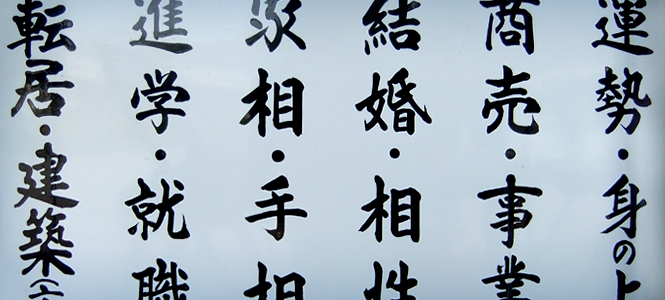 運勢・身の上
商売・事業
結婚・相性
家相・手相
進学・就職
転居・建築(